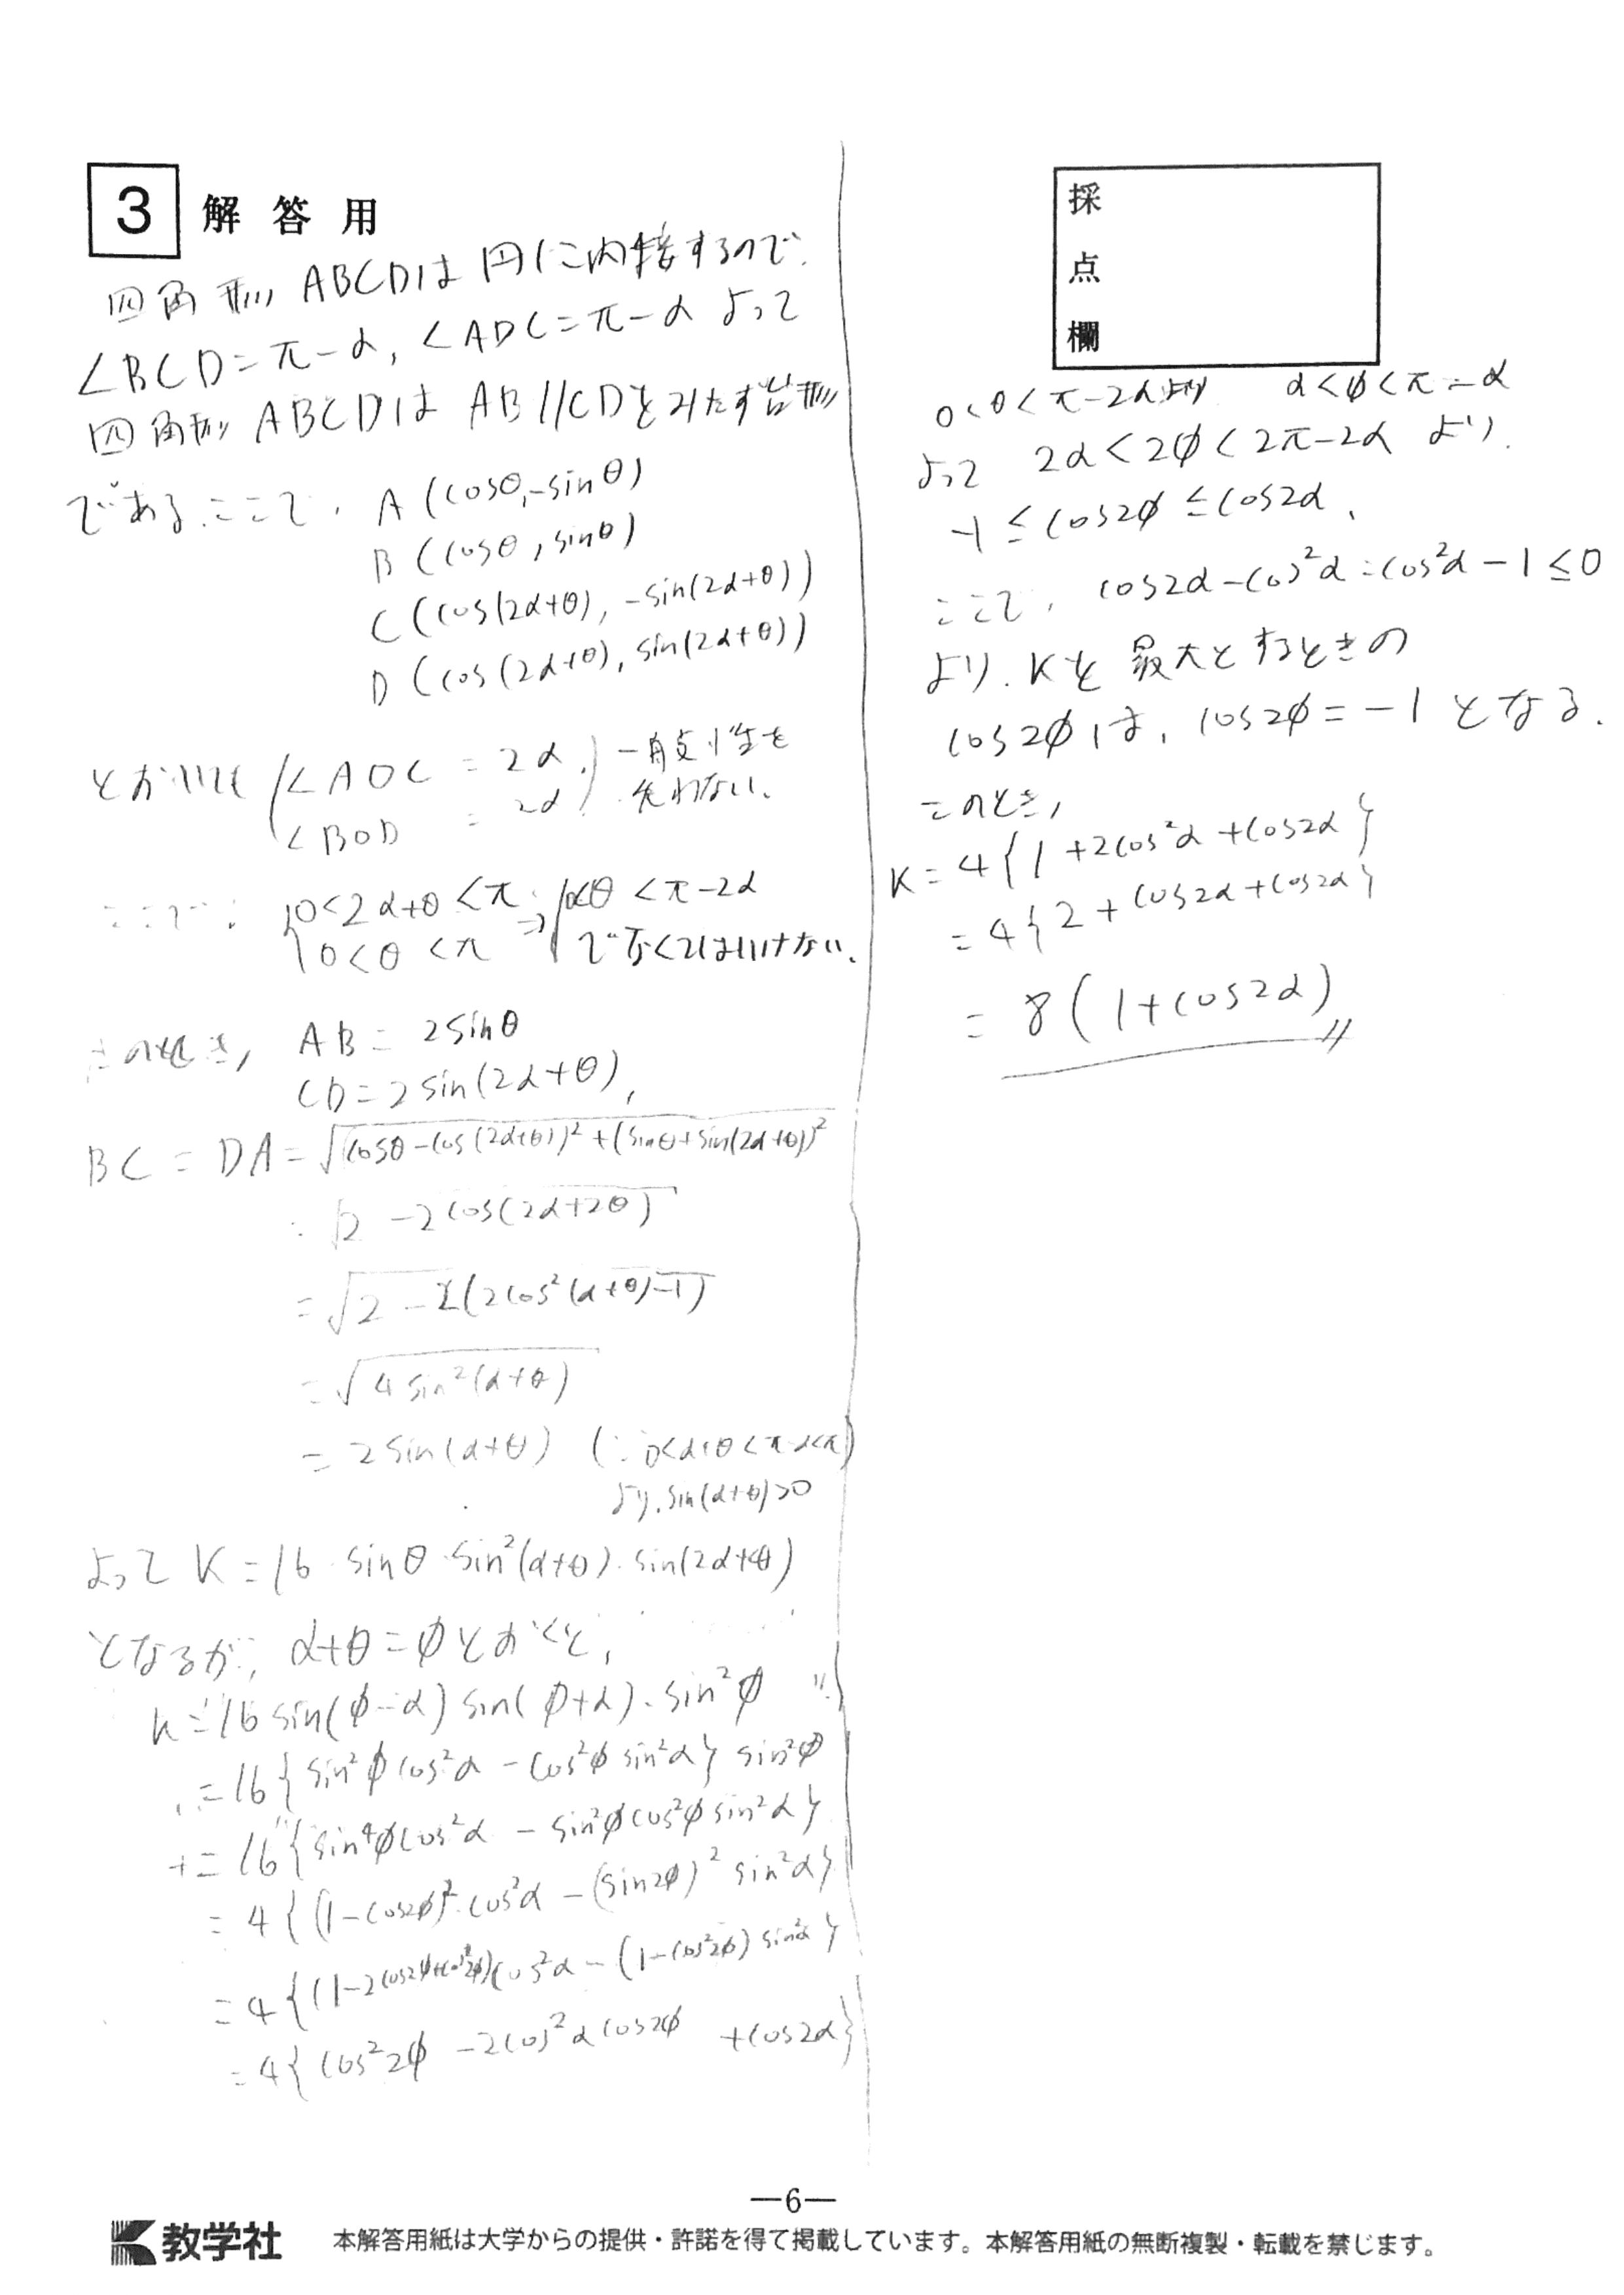 3 解答用
四角形ABCDは円に内接するので、
∠BCD=π-α, ∠ADC=π-α よって
四角形ABCDは AB//CDをみたす台形
である。ここで、A(cosθ,-sinθ)
B(cosθ, sinθ)
C(cos(2α+θ), -sin(2α+θ))
D(cos(2α+θ), sin(2α+θ))
とおいても (∠AOC = 2α, ∠BOD = 2α) 一般性を
失わない。
ここで、{0<2α+θ<π, 0<θ<π ⇒ 0<θ<π-2α
でなくてはいけない。
このとき, AB= 2sinθ
CD=2sin(2α+θ),
BC = DA=√(cosθ-cos(2α+θ))²+(sinθ+sin(2α+θ))²
=√2-2cos(2α+2θ)
=√2-2(2cos²(α+θ)-1)
=√4sin²(α+θ)
= 2sin(α+θ) (∵0<α+θ<π-α<π)
より、sin(α+θ)>0
よって K=16・sinθ・sin²(α+θ)・sin(2α+θ)
となるが、α+θ=φとおくと、
k=16sin(φ-α)sin(φ+α)・sin²φ
=16{sin²φcos²α-cos²φsin²α}sin²φ
=16{sin⁴φcos²α-sin²φcos²φsin²α}
=4{(1-cos2φ)²・cos²α-(sin2φ)²sin²α}
=4{(1-2cos2φ+cos²2φ)cos²α-(1-cos²2φ)sin²α}
=4{cos²2φ-2cos²αcos2φ+cos2α}
採点欄
0<θ<π-2αより α<φ<π-α
よって 2α<2φ<2π-2α より、
-1≤cos2φ≤cos2α、
ここで、cos2α-cos²α=cos²α-1≤0
より、Kを最大とするときの
cos2φは、cos2φ=-1となる。
このとき、
K=4{1+2cos²α+cos2α}
=4{2+cos2α+cos2α}
=8(1+cos2α)〃
—6—
教学社 本解答用紙は大学からの提供・許諾を得て掲載しています。本解答用紙の無断複製・転載を禁じます。